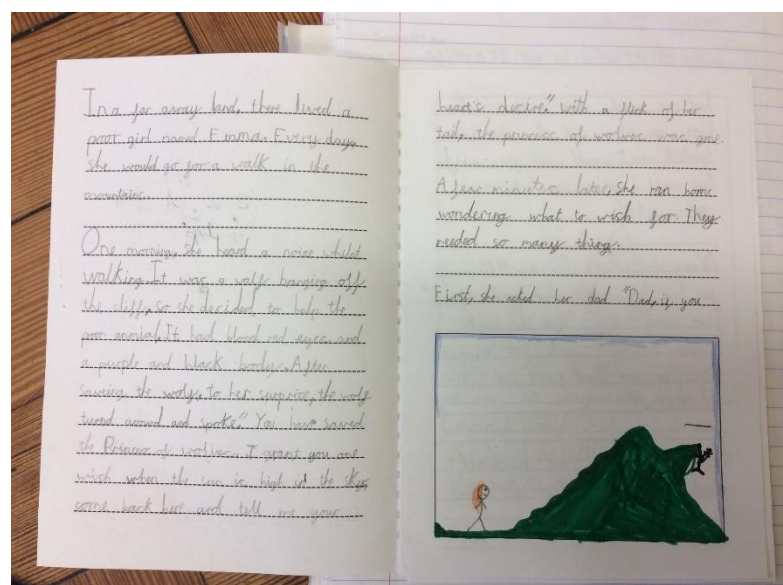 In a far away land, there lived a
poor girl named Emma. Every day,
she would go for a walk in the
mountains.
One morning, she heard a noise whilst
walking. It was a wolf hanging off
the cliff, so she decided to help the
poor animial. It had blood red eyes and
a purple and black body. After
saweing the wolf, to her surprise, the wolf
turned around and spoke." You have saved
the Princess of wolives. I grant you one
wish when the sun is high in the sky,
come back here and tell me your
heart's desire." with a flick of her
tail, the princess of wolves was gone.
A few minutes later, she ran home
wondering what to wish for. They
needed so many thing.
First, she asked her dad "Dad, if you